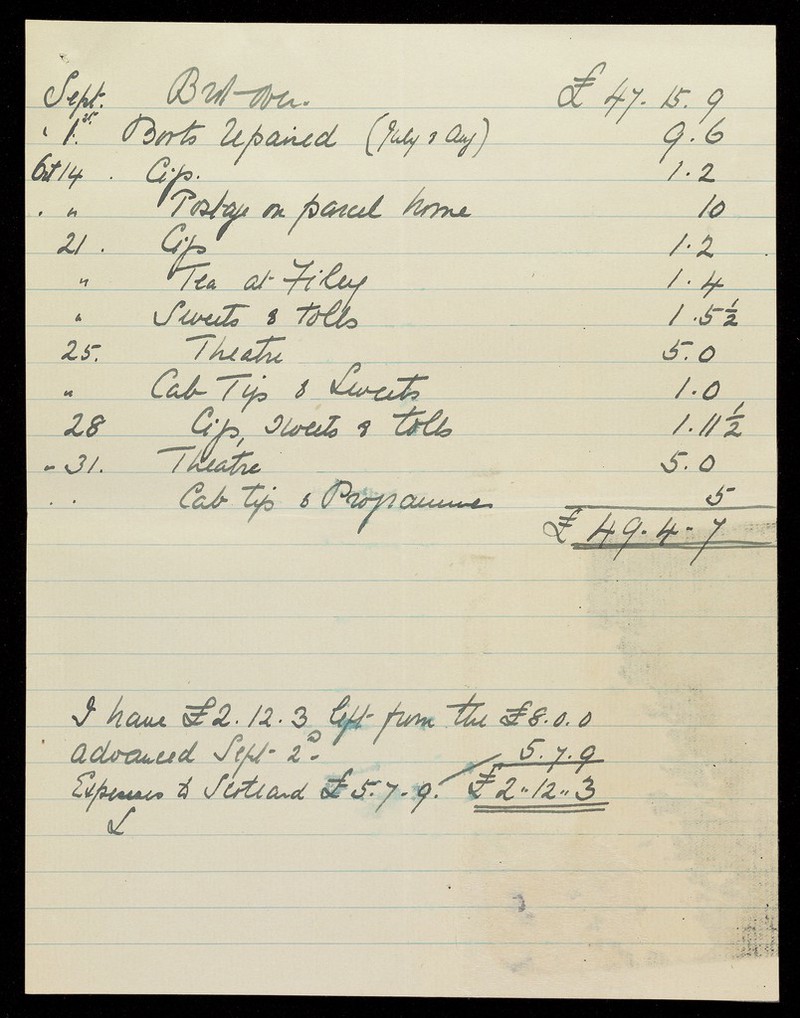 Sept. Brot over. £ 47. 15. 9
" 1st. Boots repaired (July & Aug) 9. 6
Oct 14. Cigs. 1. 2
. " Postage on parcel home 10
21. Cigs 1. 2
" Tea at Filey 1. 4
" Sweets & tolls 1. 5½
25. Theatre 5. 0
" Cab Tip & Sweets 1. 0
28 Cigs, sweets & tolls 1. 11½
" 31. Theatre 5. 0
. . Cab tip & Programmes 5
£ 49. 4. 7
I have £2. 12. 3 left from the £8. 0. 0
advanced Sept 2nd. 5. 7. 9
Expenses to Scotland £5. 7. 9. £2 " 12 " 3
£